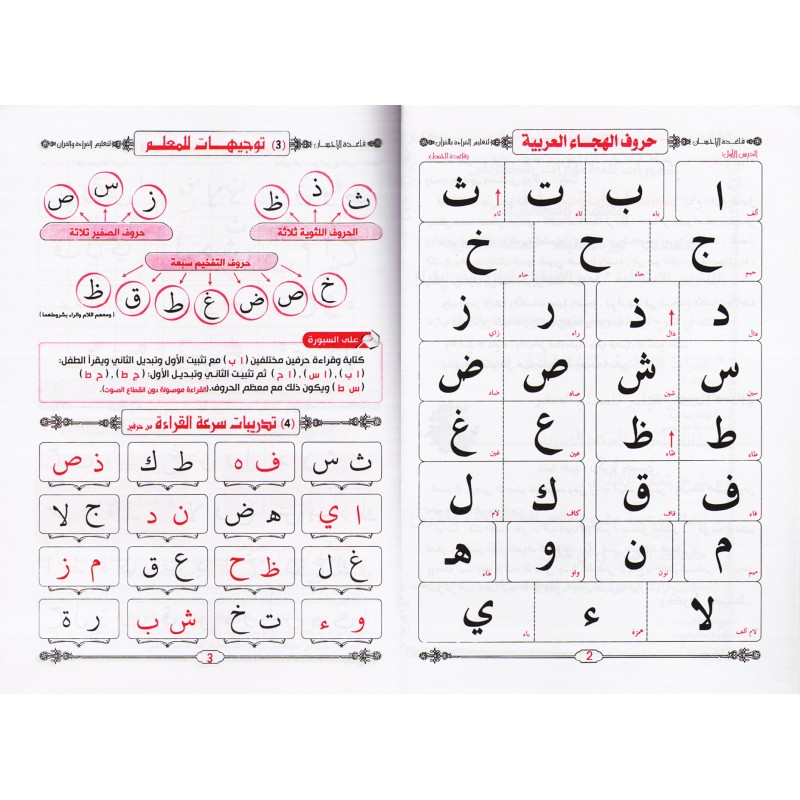 قاعدة الإحسان
حروف الهجاء العربية
لتعليم القراءة بالقرآن
الدرس الأول:
(قاعدة الخط)
ا ب ت ث
ألف باء تاء ثاء
ج ح خ
جيم حاء خاء
د ذ ر ز
دال ذال راء زاي
س ش ص ض
سين شين صاد ضاد
ط ظ ع غ
طاء ظاء عين غين
ف ق ك ل
فاء قاف كاف لام
م ن و هـ
ميم نون واو هاء
لا ء ي
لام ألف همزة ياء
2
قاعدة الإحسان
(3) توجيهات للمعلم
لتعليم القراءة بالقرآن
ث ذ ظ
الحروف اللثوية ثلاثة
ز س ص
حروف الصفير ثلاثة
حروف التفخيم سبعة
خ ص ض غ ط ق ظ
(ومعهم اللام والراء بشروطهما)
على السبورة
كتابة وقراءة حرفين مختلفين (ا ب) مع تثبيت الأول وتبديل الثاني ويقرأ الطفل:
(ا ب)، (ا س)، (ا ح) ثم تثبيت الثاني وتبديل الأول: (ج ط)، (ح ط)
(س ط) ويكون ذلك مع معظم الحروف. (القراءة موصولة دون انقطاع الصوت).
(4) تدريبات سرعة القراءة من حرفين
ث س ف ه ط ك ذ ص
ا ي هـ ض ن د ج لا
غ ل ظ ح ع ق م ز
و ء ت خ ش ب ر ة
3